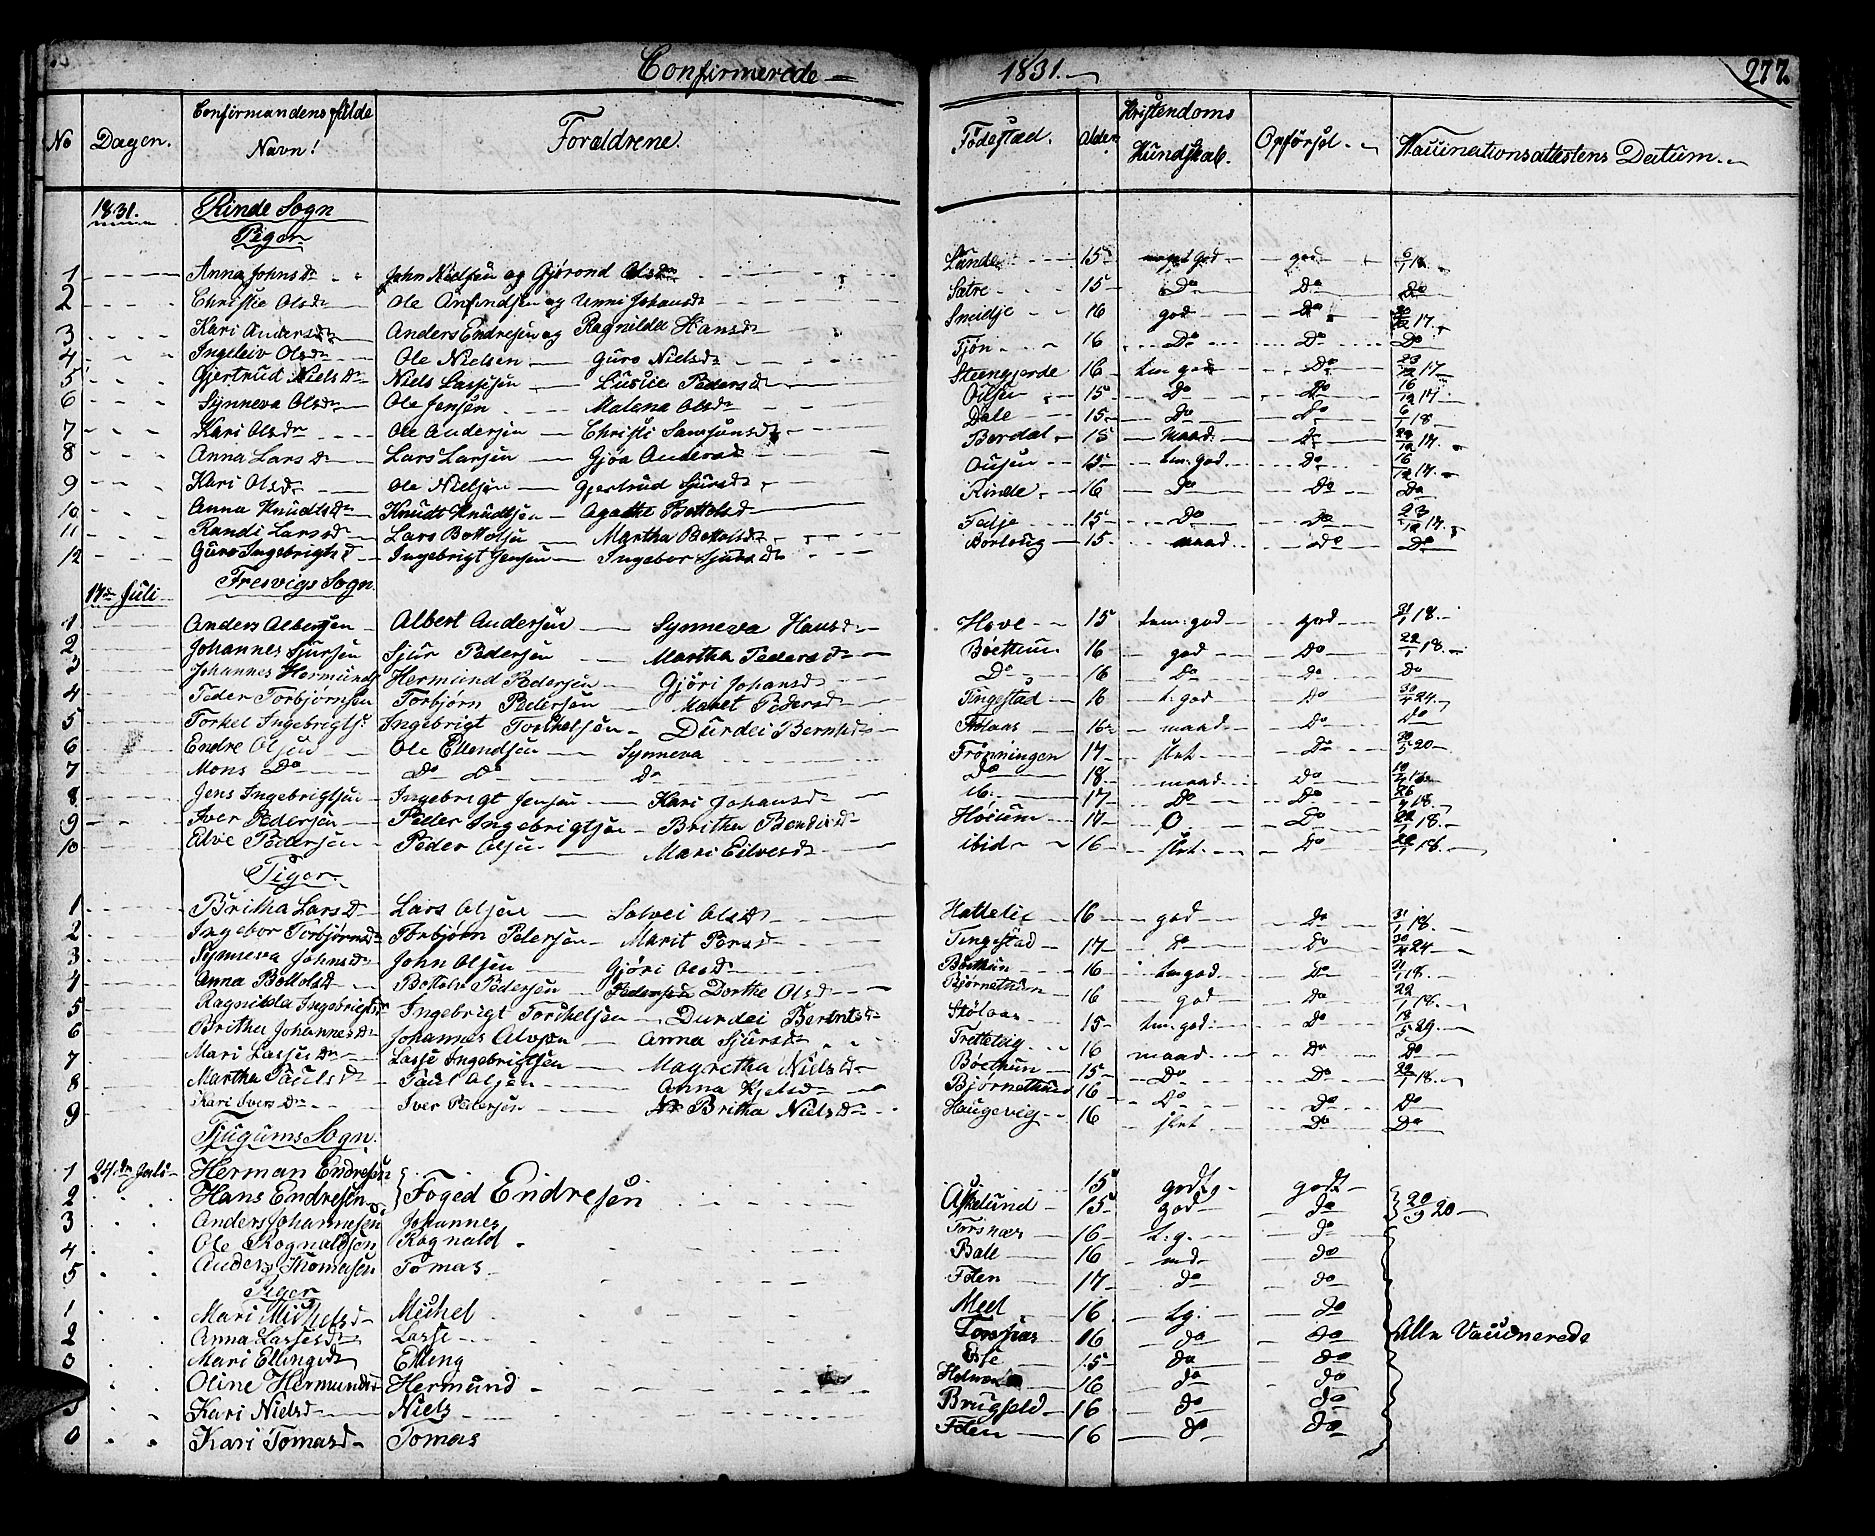 Confirmerede 1831. 277.
No Dagen. Confirmandens fulde Navn! Forældrene. Fødestad. Alder Kristendoms Kundskab. Opførsel. Vaccinationsattestens Datum.
1831. Rinde Sogn
Piger
1 Anna Johnsdr John Nielsen og Gjørond Olsdr Lunde 15 meget god god 6/1 18.
2 Christie Olsdr Ole Anfindsen og Unni Johansdr Sætre 15 Do Do Do
3 Kari Andersdr Anders Endresen og Ragnilda Hansdr Sneidje 16 god Do 30/12 17.
4 Ingeleiv Olsdr Ole Nielsen Guro Nielsdr Tjøn 16 Do Do Do
5 Gjertrud Nielsdr Niels Lassesen Lussie Pedersdr Steengjerde 16 tem. god Do 23/12 17
6 Synneva Olsdr Ole Jensen Malena Olsdr 15 Do Do 16/12 17.
7 Kari Olsdr Ole Andersen Christi Samsonsdr Dale 15 Do Do 6/1 18
8 Anna Larsdr Lars Larsen Gjøa Andersdr Berdal 15 maad. Do 12 17.
9 Kari Olsdr Ole Nielsen Gjertrud Sjursdr Ousen 15 tem. god Do 16/12 17.
10 Anna Knudtsdr Knudt Knudtsen Agathe Bottolsd Rinde 16 Do Do Do
11 Randi Larsdr Lars Bottolsen Martha Bottolsdr Feije 15 Do Do 23/12 17.
12 Guro Ingebrigtsd Ingebrigt Jensen Ingebor Sjursdr Børloug 15 maad Do Do
17de Juli Fresvigs Sogn
1 Anders Albertsen Albert Andersen Synneva Hansdr Hove 15 tem: god god 31/1 18.
2 Johannes Sjursen Sjur Pedersen Martha Pedersdr Bøethun 16 god Do 22/1 18.
3 Johannes Hermunds Hermund Pedersen Gjøri Johansdr Do 16 Do Do Do
4 Peder Torbjørnsen Torbjørn Pedersen Maret Pedersdr Tingestad 16 t. god Do 30/4 24.
5 Torkel Ingebrigtse Ingebrigt Torkelsen Durdei Berntsdr 16 maad Do Do
6 Endre Olsen Ole Ellendsen Synneva Frønningen 17 slet Do 30/5 20
7 Mons Do Do Do Do Do 18 maad Do
8 Jens Ingebrigtsen Ingebrigt Jensen Kari Johansdr ib. 17 Do Do 18
9 Iver Pedersen Peder Ingebrigtsen Britha Bendixdr Høium 17 Do Do 22/1 18.
10 Elve Pedersen Peder Olsen Mari Eilvesdr ibid 16 slet. Do 22/1 18.
Piger
1 Britha Larsdr Lars Olsen Solvei Olsdr Hattelie 16 god Do 31/1 18.
2 Ingebor Torbjørnsdr Torbjørn Pedersen Marit Persdr Tingestad 17 Do Do 30/4 24
3 Synneva Johnsdr John Olsen Gjøri Olsdr Bøethun 16 tem god Do 31/1 18.
4 Anna Bottolsdr Bottolv Pedersen Dorthe Olsdr Bjørnethun 16 god Do 22/1 18.
5 Ragnilda Ingebrigtsdr Ingebrigt Torkelsen Durdei Berntsdr Stølaas 15 tem: god Do 18/5 29.
6 Britha Johannesdr Johannes Alvsen Anna Sjursdr Tretteteig 16 maad Do Do
7 Mari Lassesdr Lasse Ingebrigtsen Magretha Nielsdr Bøethun 15 Do Do 22/1 18.
8 Martha Paulsdr Paul Olsen Anna Kjelsdr Bjørnethun 16 Do Do Do
9 Kari Iversdr Iver Pedersen Britha Nielsdr Haugevig 16 slet Do Do
Tjugums Sogn.
1 24de Juli Herman Endresen } Foged Endresen 15 godt godt
2 Hans Endresen Askelund 15 god do } 20/9 20
3 Anders Johannesen Johannes Torsnæs 16 t. g. do
4 Ole Rognaldsen Rognald Bale 16 md do
5 Anders Thomasen Tomas Foten 17 do do
Piger
1 Mari Michelsdr Michel Meel 16 t.g: do
2 Anna Lassesdr Lasse Torsnæs 16 do do Alle Vaccinerede
Mari Ellingsdr Elling Esse 15 do do
Oline Hermundsd Hermund 16 do do
5 Kari Nielsdr Niels Brugfeld 16 do do
Kari Tomasdr Tomas Foten 16 do do